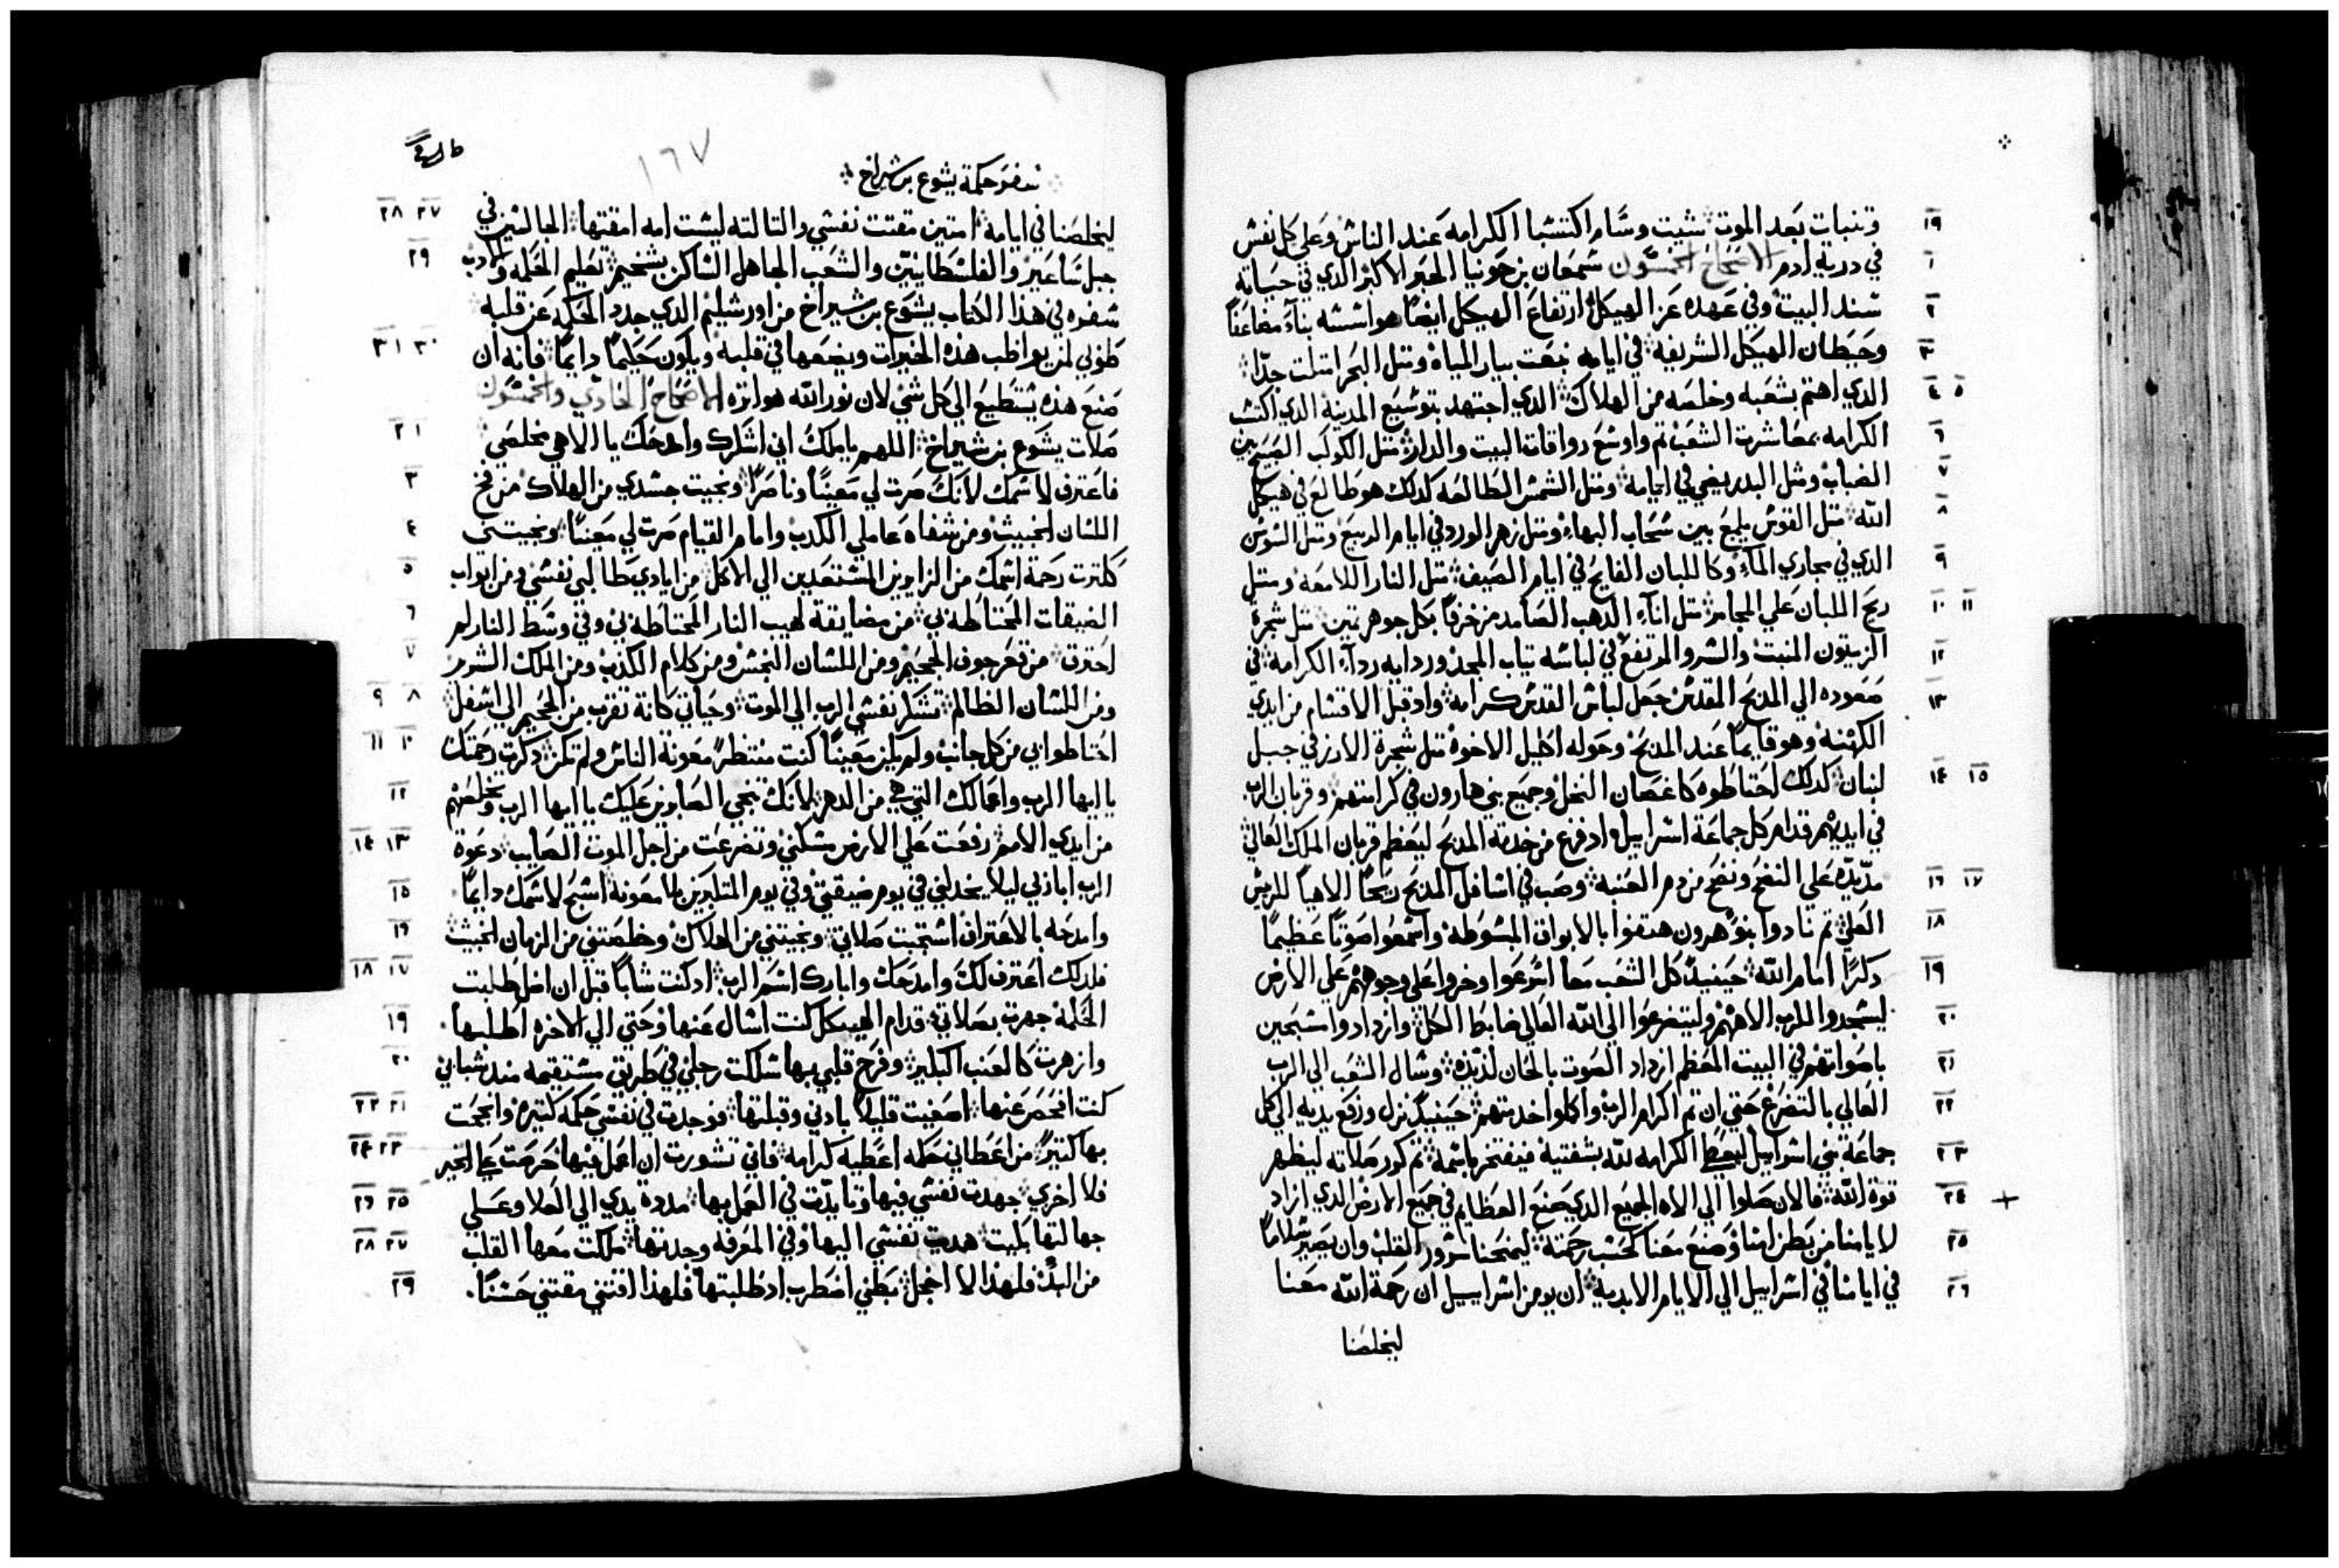 وتنبات بعد الموت شيت وسام اكتسبا الكرامه عند الناس وعلي كل نفس ١٩
في درية ادم الاصحاح الخمسون شمعان بن حونيا الحبر الاكبر الدي في حياته ١
سند البيت وفي عهده عز الهيكل ارتفاع الهيكل ايضا هو اسسه بناء مضاعفا ٢
وحيطان الهيكل الشريفه في ايامه نبعت بيار المياه ومتل البحر امتلت جدا ٣
الدي اهتم بشعبه وخلصه من الهلاك الدي اجتهد بتوسيع المدينه الدي اكتسب ٤ ٥
الكرامه بمعاشرت الشعب تم واوسع رواقات البيت والدار متل الكوكب الصبح بين ٦
الضباب ومتل البدر يضي في ايامه ومتل الشمس الطالعه كدلك هو طالع في هيكل ٧
الله متل القوس يلمع بين سحاب البهاء ومتل زهر الورد في ايام الربيع ومتل السوسن ٨
الدي في مجاري الماء وكاللبان الفايح في ايام الصيف متل النار اللامعه ومتل ٩
ريح اللبان علي المجامر متل اناء الدهب الصامد مزخرفا بكل جوهر تمين متل شجرة ١٠ ١١
الزيتون المنبت والسرو المرتفع في لباسه تياب المجد وردايه رداء الكرامه في ١٢
صعوده الي المدبح المقدس جعل لباس القدس كرامه واد قبل الاقسام من ايدي ١٣
الكهنه وهو قايما عند المدبح وحوله اكليل الاخوة متل شجرة الارز في جبل
لبنان كدلك احتاطوه كاغصان النخل وجميع بني هارون في كرامتهم وقربان الرب ١٤ ١٥
في ايديهم قدام كل جماعة اسراييل واد فرغ من خدمة المدبح ليعظم قربان الملك العالي
مد يده علي النضح ونضح من دم العنبه وصب في اسافل المدبح ريحا الاهيا للريس ١٦ ١٧
العلي تم نادوا بنو هرون هتفوا بالابواق المبسوطه واسمعوا صوتا عظيما ١٨
دكرا امام الله حينيد كل الشعب معا اسرعوا وخروا علي وجوههم علي الارض ١٩
ليسجدوا للرب الاههم وليتضرعوا الي الله العالي ضابط الكل وازدادوا مسبحين ٢٠
باصواتهم في البيت المعظم ازداد الصوت بالحان لديده وسال الشعب الي الرب ٢١
العالي بالتضرع حتي ان تم اكرام الرب واكملوا خدمتهم حينيد نزل ورفع يديه الي كل ٢٢
جماعة بني اسراييل ليعطي الكرامه لله بشفتيه فيفتخر باسمه تم كرر صلاته ليظهر ٢٣
قوة الله فالان صلوا الي الاه الجميع الدي صنع العظايم في جميع الارض الدي ازاد ٢٤
لايامنا من بطن امنا وصنع معنا كحسب رحمته ليمنحنا سرور القلب وان يصير سلاما ٢٥
في ايامنا في اسراييل الي الايام الابديه ان يومن اسراييل ان رحمة الله معنا ٢٦
ليخلصنا
١٦٧
سفر حكمة يشوع بن شيراخ
ليخلصنا في ايامه امتين مقتت نفسي والتالته ليست امه امقتها الجالسين في ٢٧ ٢٨
جبل ساعير والفلسطانيين والشعب الجاهل الساكن بشخيم تعليم الحكمه والادب ٢٩
سفره في هدا الكتاب يشوع بن شيراخ من اورشليم الدي جدد الحكمه عن قلبه
طوبي لمن يواظب هده الخيرات ويضعها في قلبه ويكون حكيما دايما فانه ان ٣٠ ٣١
صنع هده يستطيع الي كل شي لان نور الله هو اتره الاصحاح الحادي والخمسون
صلات يشوع بن شيراخ اللهم ياملك اني اشكرك وامدحك يا الاهي مخلصي ١ ٢
فاعترف لاسمك لانك صرت لي معينا وناصرا ونجيت جسدي من الهلاك من فخ ٣
اللسان الخبيث ومن شفاه عاملي الكدب وامام القيام صرت لي معينا ونجيتني ٤
ككترت رحمة اسمك من الزايرين المستعدين الي الاكل من ايادي طالبي نفسي ومن ابواب ٥
الضيقات المحتاطه بي من مضايقة لهيب النار المحتاطه بي وفي وسط النار لم ٦
احترق من قعر جوف الجحيم ومن اللسان النجس ومن كلام الكدب ومن الملك الشرير ٧
ومن اللسان الظالم تشكر نفسي الرب الي الموت وحياتي كانة تقرب من الجحيم الي اسفل ٨ ٩
احتاطوا بي من كل جانب ولم يكن معينا كنت منتظرا معونة الناس ولم تكن دكرت رحمتك ١٠ ١١
يا ايها الرب واعمالك التي هي من الدهر لانك تنجي الصابرين عليك يا ايها الرب وتخلصهم ١٢
من ايدي الامم رفعت علي الارض مسكني وتضرعت من اجل الموت الصايب دعوة ١٣ ١٤
الرب اباربي ليلا يخدلني في يوم ضيقتي وفي يوم المتكبرين بلا معونة اسبح لاسمك دايما ١٥
وامدحه بالاعتراف استجبت صلاتي ونجيتني من الهلاك وخلصتني من الزمان الخبيث ١٦
فلدلك اعترف لك وامدحك وابارك اسم الرب اد كنت شابا قبل ان اضل طلبت ١٧ ١٨
الحكمة جهرت بصلاتي قدام الهيكل كنت اسال عنها وحتي الي الاخره اطلبها ١٩
وازهرت كالعنب البكير وفرح قلبي بها سلكت رجلي في طريق مستقيمه مند شبابي ٢٠
كنت افحص عنها اصغيت قليلا بادني وقبلتها فوجدت في نفسي حكمه كتيره وانجحت ٢١ ٢٢
بها كتيرا من اعطاني حكمه اعطيه كرامه فاني تشورت ان اعمل فيها حرصت علي الخير ٢٣ ٢٤
فلا اخري جهدت نفسي فيها وتايدت في العمل بها مددت يدي الي العلا وعلي ٢٥ ٢٦
جهالتها بكيت هديت نفسي اليها وفي المعرفه وجدتها ملكت معها القلب ٢٧ ٢٨
من البدء فلهدا لا اخجل بطني اضطرب اد طلبتها فلهدا اقتني مقتني حسنا ٢٩